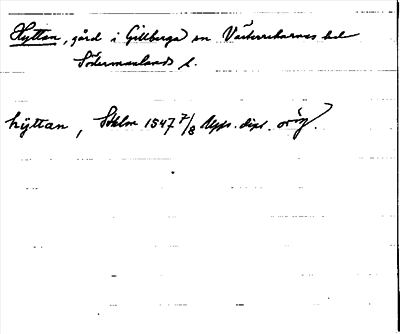 Hyttan, gård i Gillberga sn Västerrekarnes hd
Södermanlands l.
hÿttan, Sthlm 1547 7/8 Upps. dipl. orig.